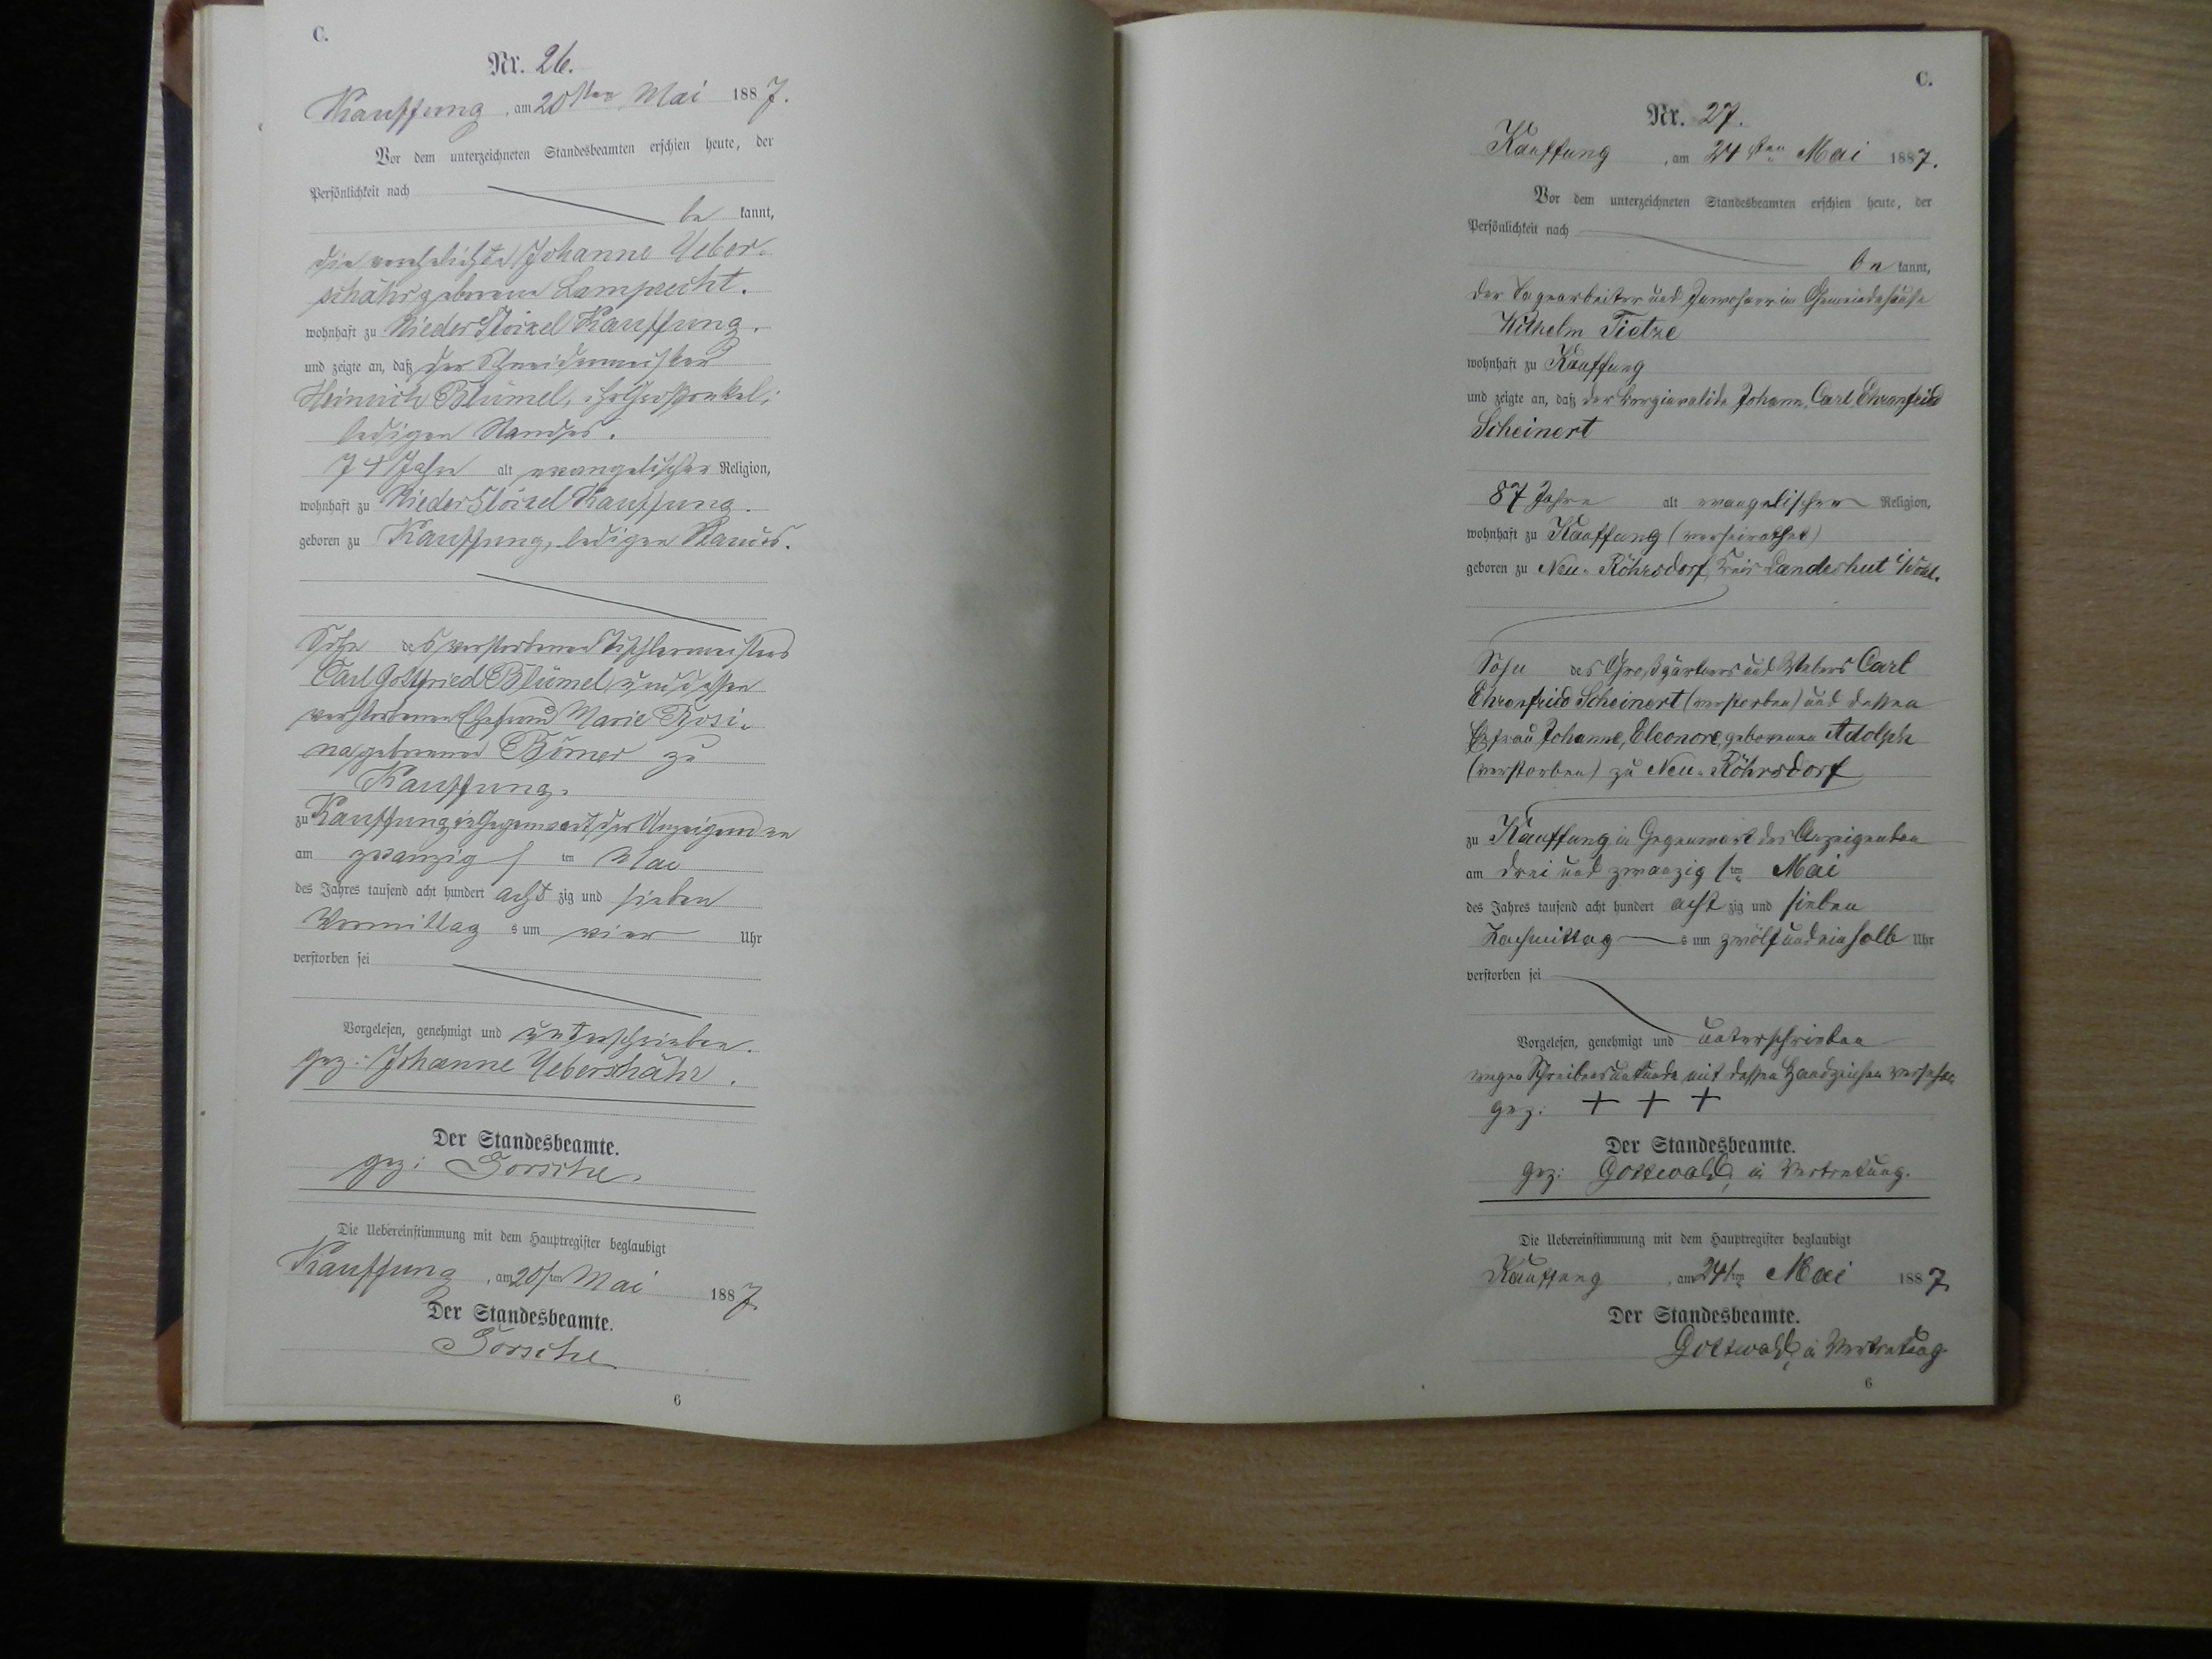 C.
Nr. 26.
Kauffung, am 20sten Mai 1887.
Vor dem unterzeichneten Standesbeamten erschien heute, der
Persönlichkeit nach
be kannt,
die verehelichte Johanne Ueber-
schähr geborene Lamprecht.
wohnhaft zu Nieder Stoizel Kauffung.
und zeigte an, daß der Schneidermeister
Heinrich Blümel, ihr Großonkel,
ledigen Standes.
74 Jahre alt evangelischer Religion,
wohnhaft zu Nieder Stoizel Kauffung.
geboren zu Kauffung, ledigen Standes.
Sohn des verstorbenen Tischlermeisters
Carl Gottfried Blümel und dessen
verstorbenen Ehefrau Marie Rosi-
na geborenen Börner zu
Kauffung.
zu Kauffung in Gegenwart der Anzeigenden
am zwanzigsten Mai
des Jahres tausend acht hundert acht zig und sieben
Vormittag s um vier Uhr
verstorben sei
Vorgelesen, genehmigt und unterschrieben.
gez: Johanne Ueberschähr.
Der Standesbeamte.
gez:
Die Uebereinstimmung mit dem Hauptregister beglaubigt
Kauffung, am 20sten Mai 1887.
Der Standesbeamte.
6
C.
Nr. 27.
Kauffung, am 24sten Mai 1887.
Vor dem unterzeichneten Standesbeamten erschien heute, der
Persönlichkeit nach
be kannt,
der Tagearbeiter und Inwohner im Gemeindehause
Wilhelm Tietze
wohnhaft zu Kauffung
und zeigte an, daß der Berginvalide Johann, Carl Ehrenfried
Scheinert
87 Jahre alt evangelischen Religion,
wohnhaft zu Kauffung (verheirathet)
geboren zu Neu-Röhrsdorf, Kreis Landeshut
Sohn des Großgärtners und Webers Carl
Ehrenfried Scheinert (verstorben) und dessen
Ehefrau Johanne, Eleonore, geborenen Adolph
(verstorben) zu Neu-Röhrsdorf
zu Kauffung in Gegenwart des Anzeigenden
am drei und zwanzigsten Mai
des Jahres tausend acht hundert acht zig und sieben
Nachmittag s um zwölf und ein halb Uhr
verstorben sei
Vorgelesen, genehmigt und unterschrieben
wegen Schreibensunkunde mit dessen Handzeichen versehen
gez: + + +
Der Standesbeamte.
gez: Gottwald, in Vertretung.
Die Uebereinstimmung mit dem Hauptregister beglaubigt
Kauffung, am 24ten Mai 1887.
Der Standesbeamte.
Gottwald, in Vertretung
6